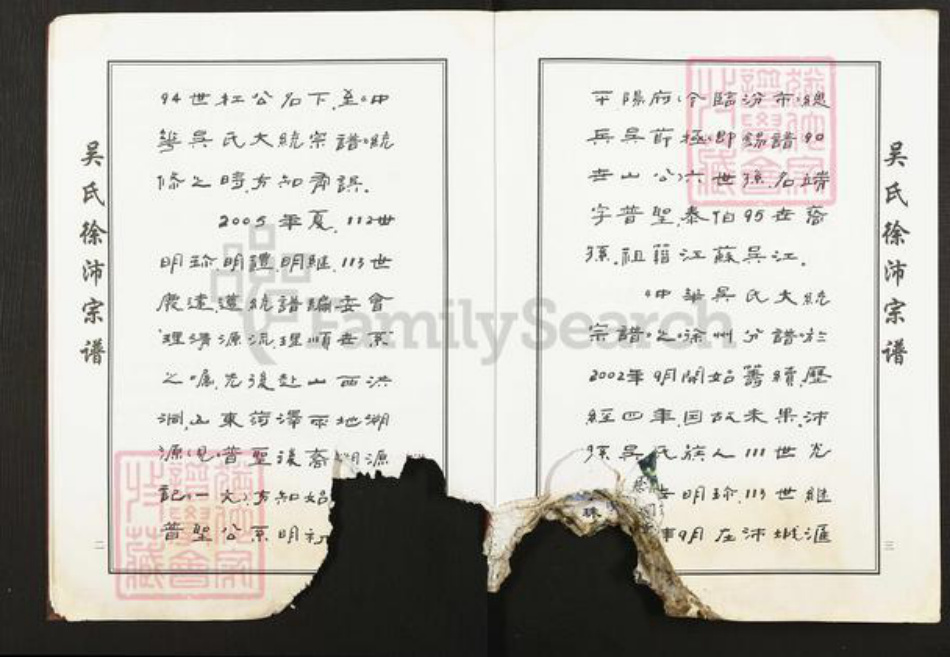 吴氏徐沛宗谱
94世红公名下.至《中
华吴氏大統宗譜》統
修之時,方知有誤.
2005年夏.112世
明珍.明禮.明継.113世
農達.遵統譜編委會
理清源流.理順世系
之嘱.先後赴山西洪
洞.山東菏澤两地溯
源.見《普聖後裔溯源
記》一文,方知始
普聖公系明初
二
平陽府(今臨汾市)總
兵吴節極(即錫譜90
世山公)六世孫.名端
字普聖.泰伯95世裔
孫.祖籍江蘇吴江.
《中華吴氏大統
宗譜》之《徐州分譜》於
2002年9月開始籌續.歷
經四年.因故未果.沛
孫吴氏族人111世光
明珍.113世継
年9月在沛城滙
珠
三
吴氏徐沛宗谱
FamilySearch